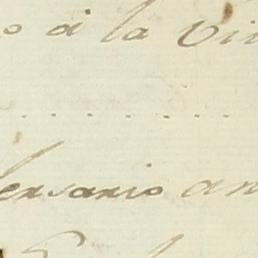 o á la Vi
ersario an